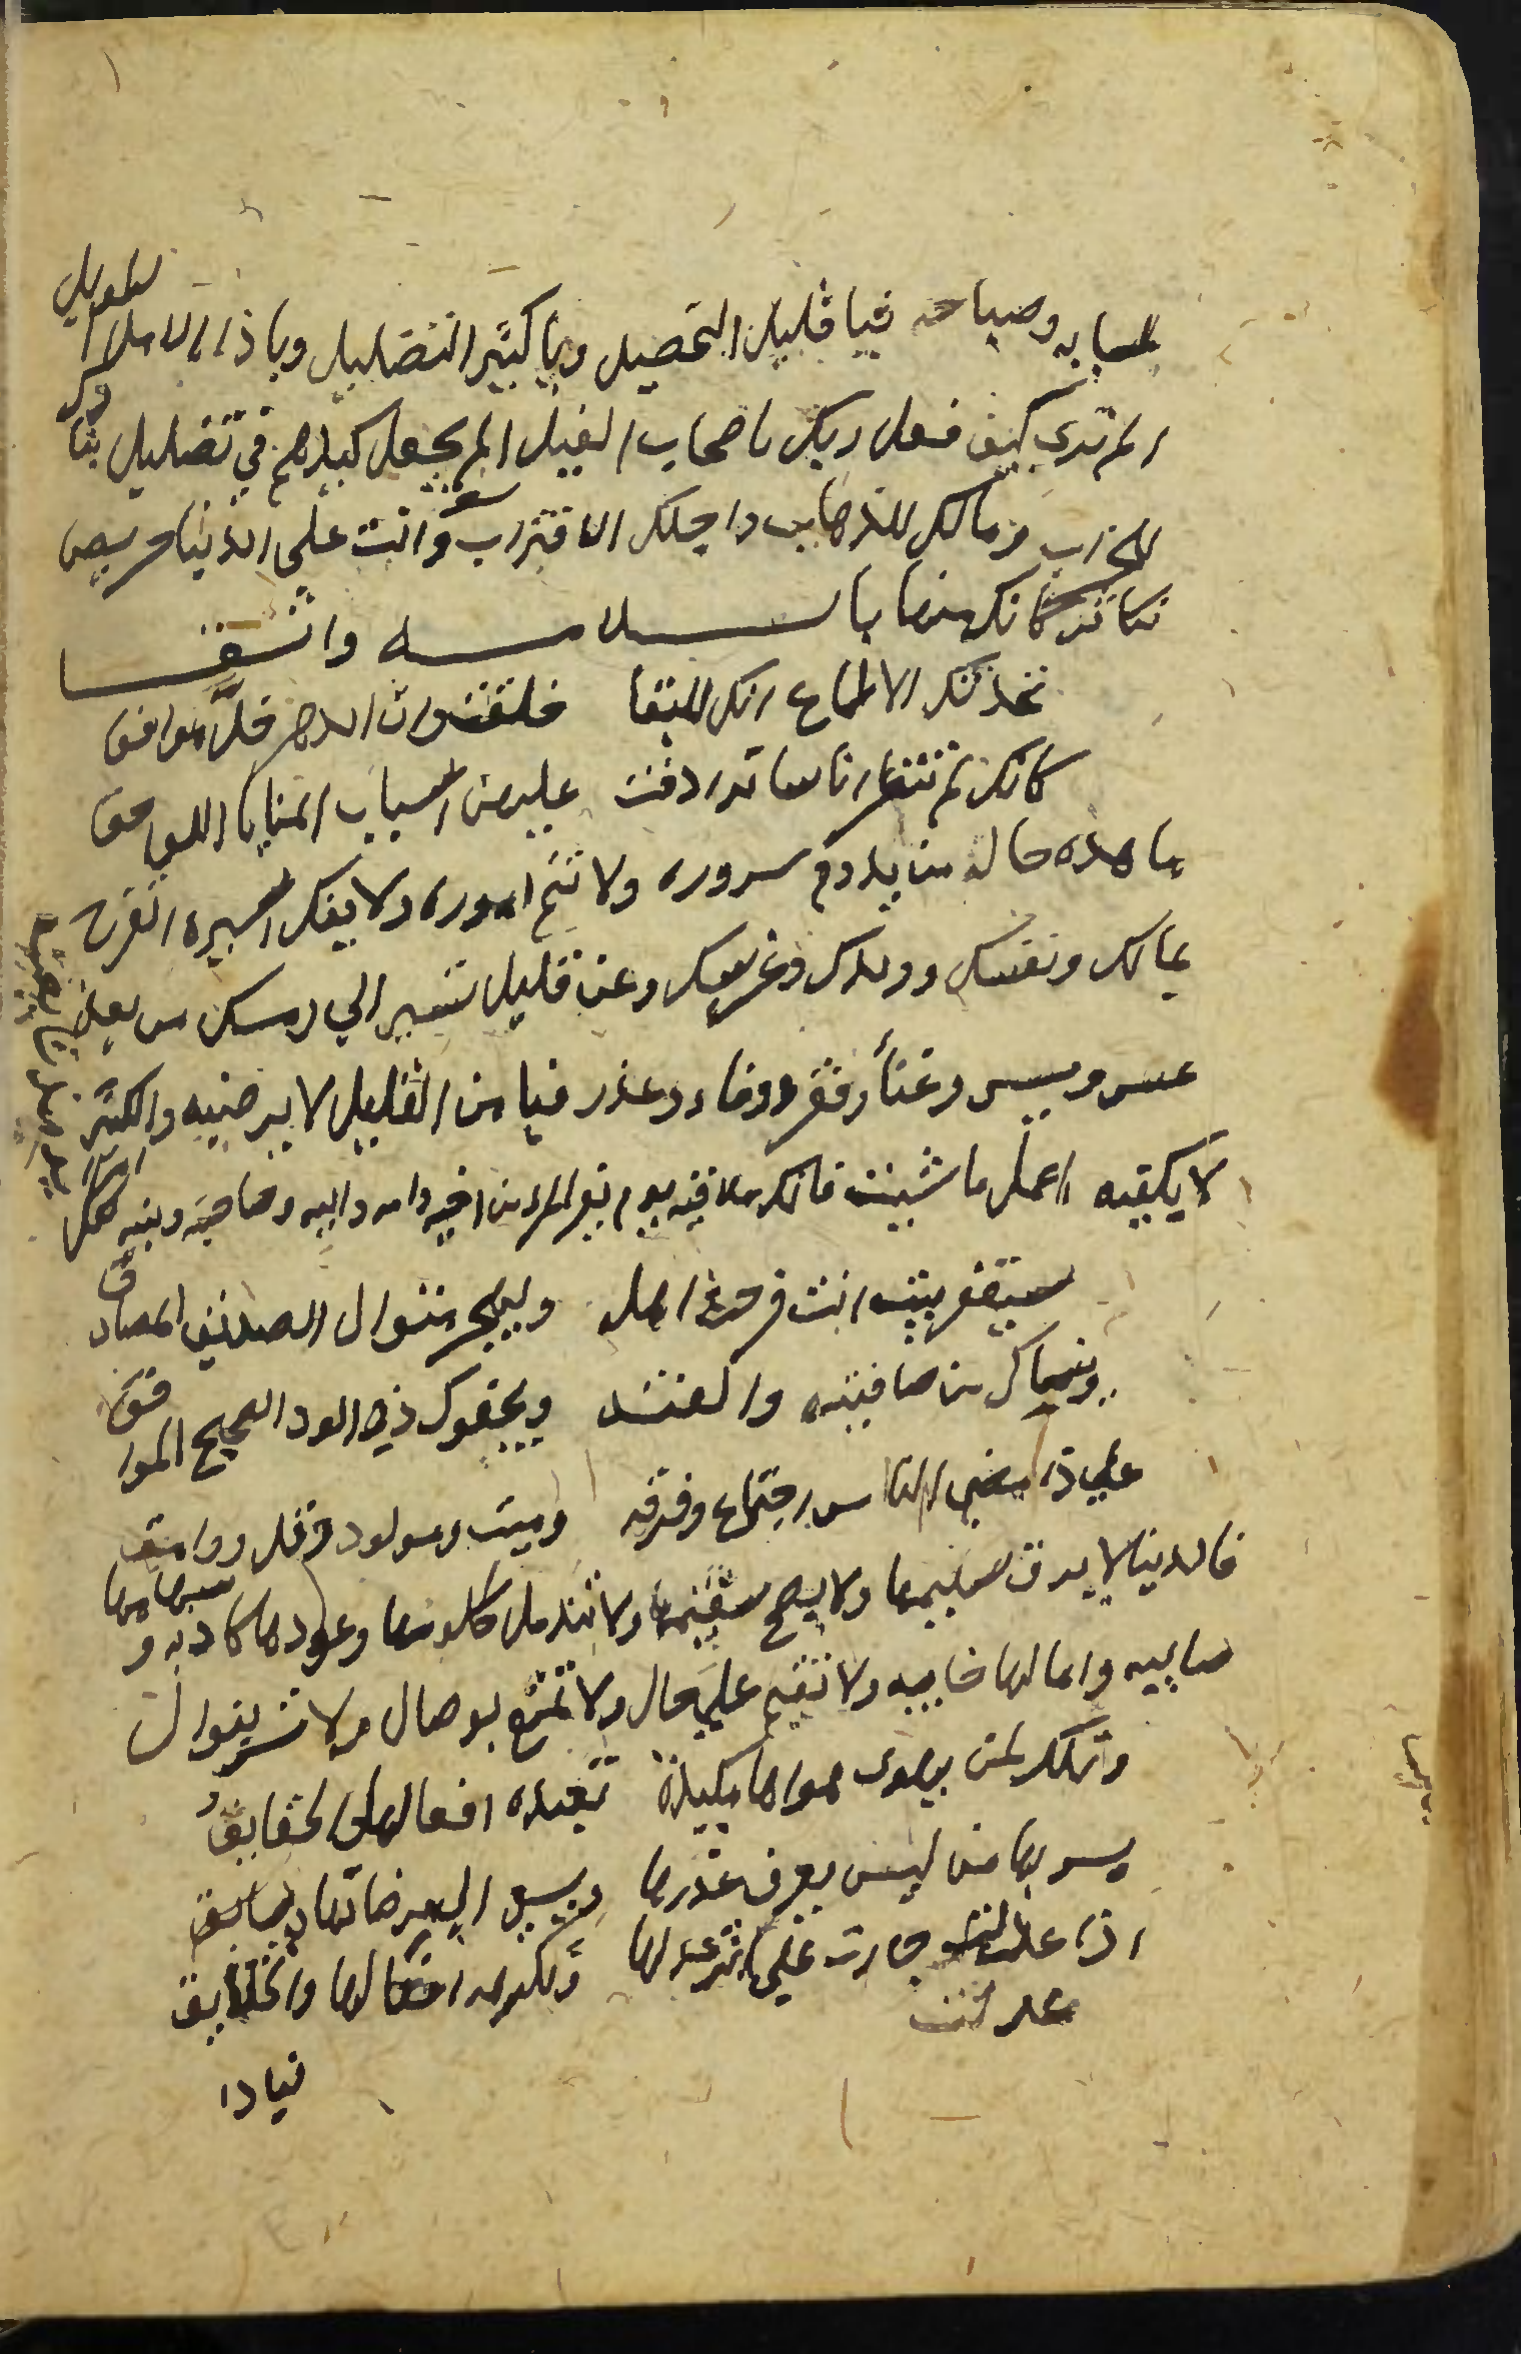 وصباحه فيا قليل التحصيل ويا كثير التضليل ويا ذا الامل الطويل
الم تري كيف فعل ربك باصحاب الفيل الم يجعل كيدهم في تضليل بناوك
للخراب ومالك للذهاب واجلك الاقتراب وانت علي الدنيا حريص
تكاثر كانك منها بالسلامه واثقا
تخدثك الاطماع انك للبقا خلقت وان الدهر خل موافق
كانك لم تنظر اناسا ترادفت عليهن اسباب المنايا اللواحق
ما هذه حالة من يدوم سروره ولا تتم اموره ولا يفك اسيره اتفرح
بمالك ونفسك وولدك وعرسك وعن قليل تسير الي رمسك من بعد
عسر ويسر وغنا وفقر ووفا وغدر فيا من القليل لا يرضيه والكثير
لا يكفيه اعمل ما شيت فانك ملاقيه يوم يفر المرء من اخيه وامه وابيه وصاحبته وبنيه لكل
سيقفر بيت انت فرحة اهله ويهجر مثواك الصديق المصادق
وينساك من صافيته والفته ويجفوك ذي الود الصحيح الموافق
علي ذا مضي الناس اجتماع وفرقه وميت ومولود وقال ووامق
فالدنيا لا يرق سليمها ولا يصح سقيمها ولا تندمل كلومها وعودها كاذبه وسهامها
صايبه وامالها خايبه ولا تقيم علي حال ولا تمتع بوصال ولا تسر بنوال
وتلك لمن يهوي هواها مكيدة تعبده افعالها والحقايق
يسر بها من ليس يعرف غدرها ويسعي الي مرضاتها ويسابق
اذا عدلت جارت علي اثر عدلها ومكروه افعالها والخلايق
عدلت
فيا ذا